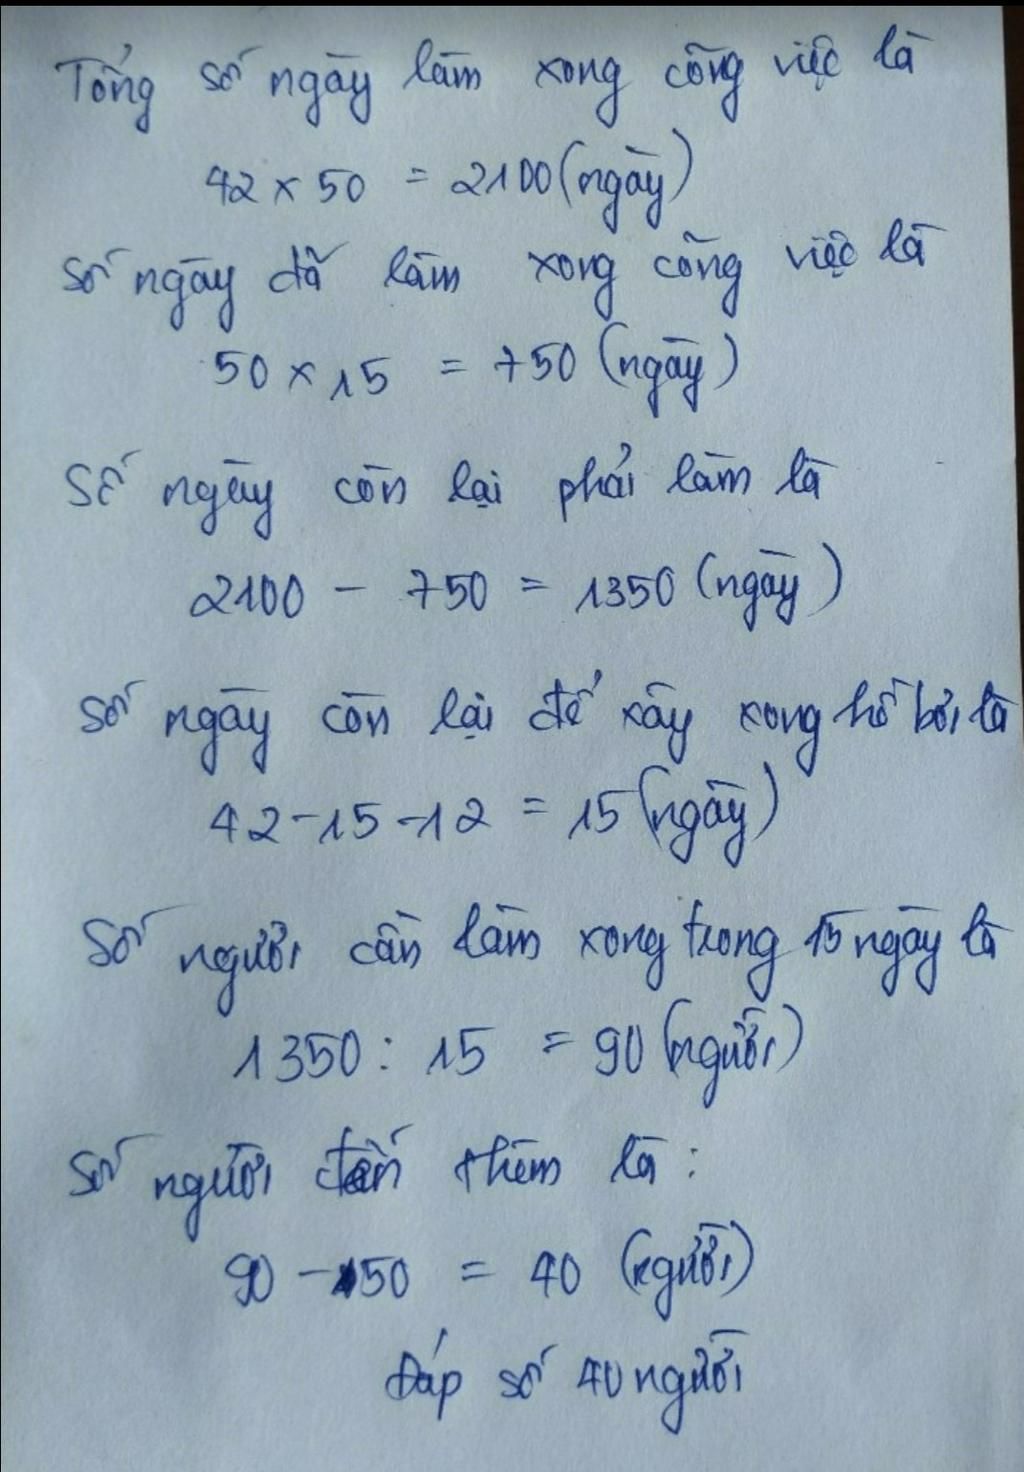 Tổng số ngày làm xong công việc là
42 x 50 = 2100 (ngày)
Số ngày đã làm xong công việc là
50 x 15 = 750 (ngày)
Số ngày còn lại phải làm là
2100 - 750 = 1350 (ngày)
Số ngày còn lại để xây xong hồ bơi là
42 - 15 - 12 = 15 (ngày)
Số người cần làm xong trong 15 ngày là
1350 : 15 = 90 (người)
Số người đến thêm là :
90 - 50 = 40 (người)
Đáp số 40 người